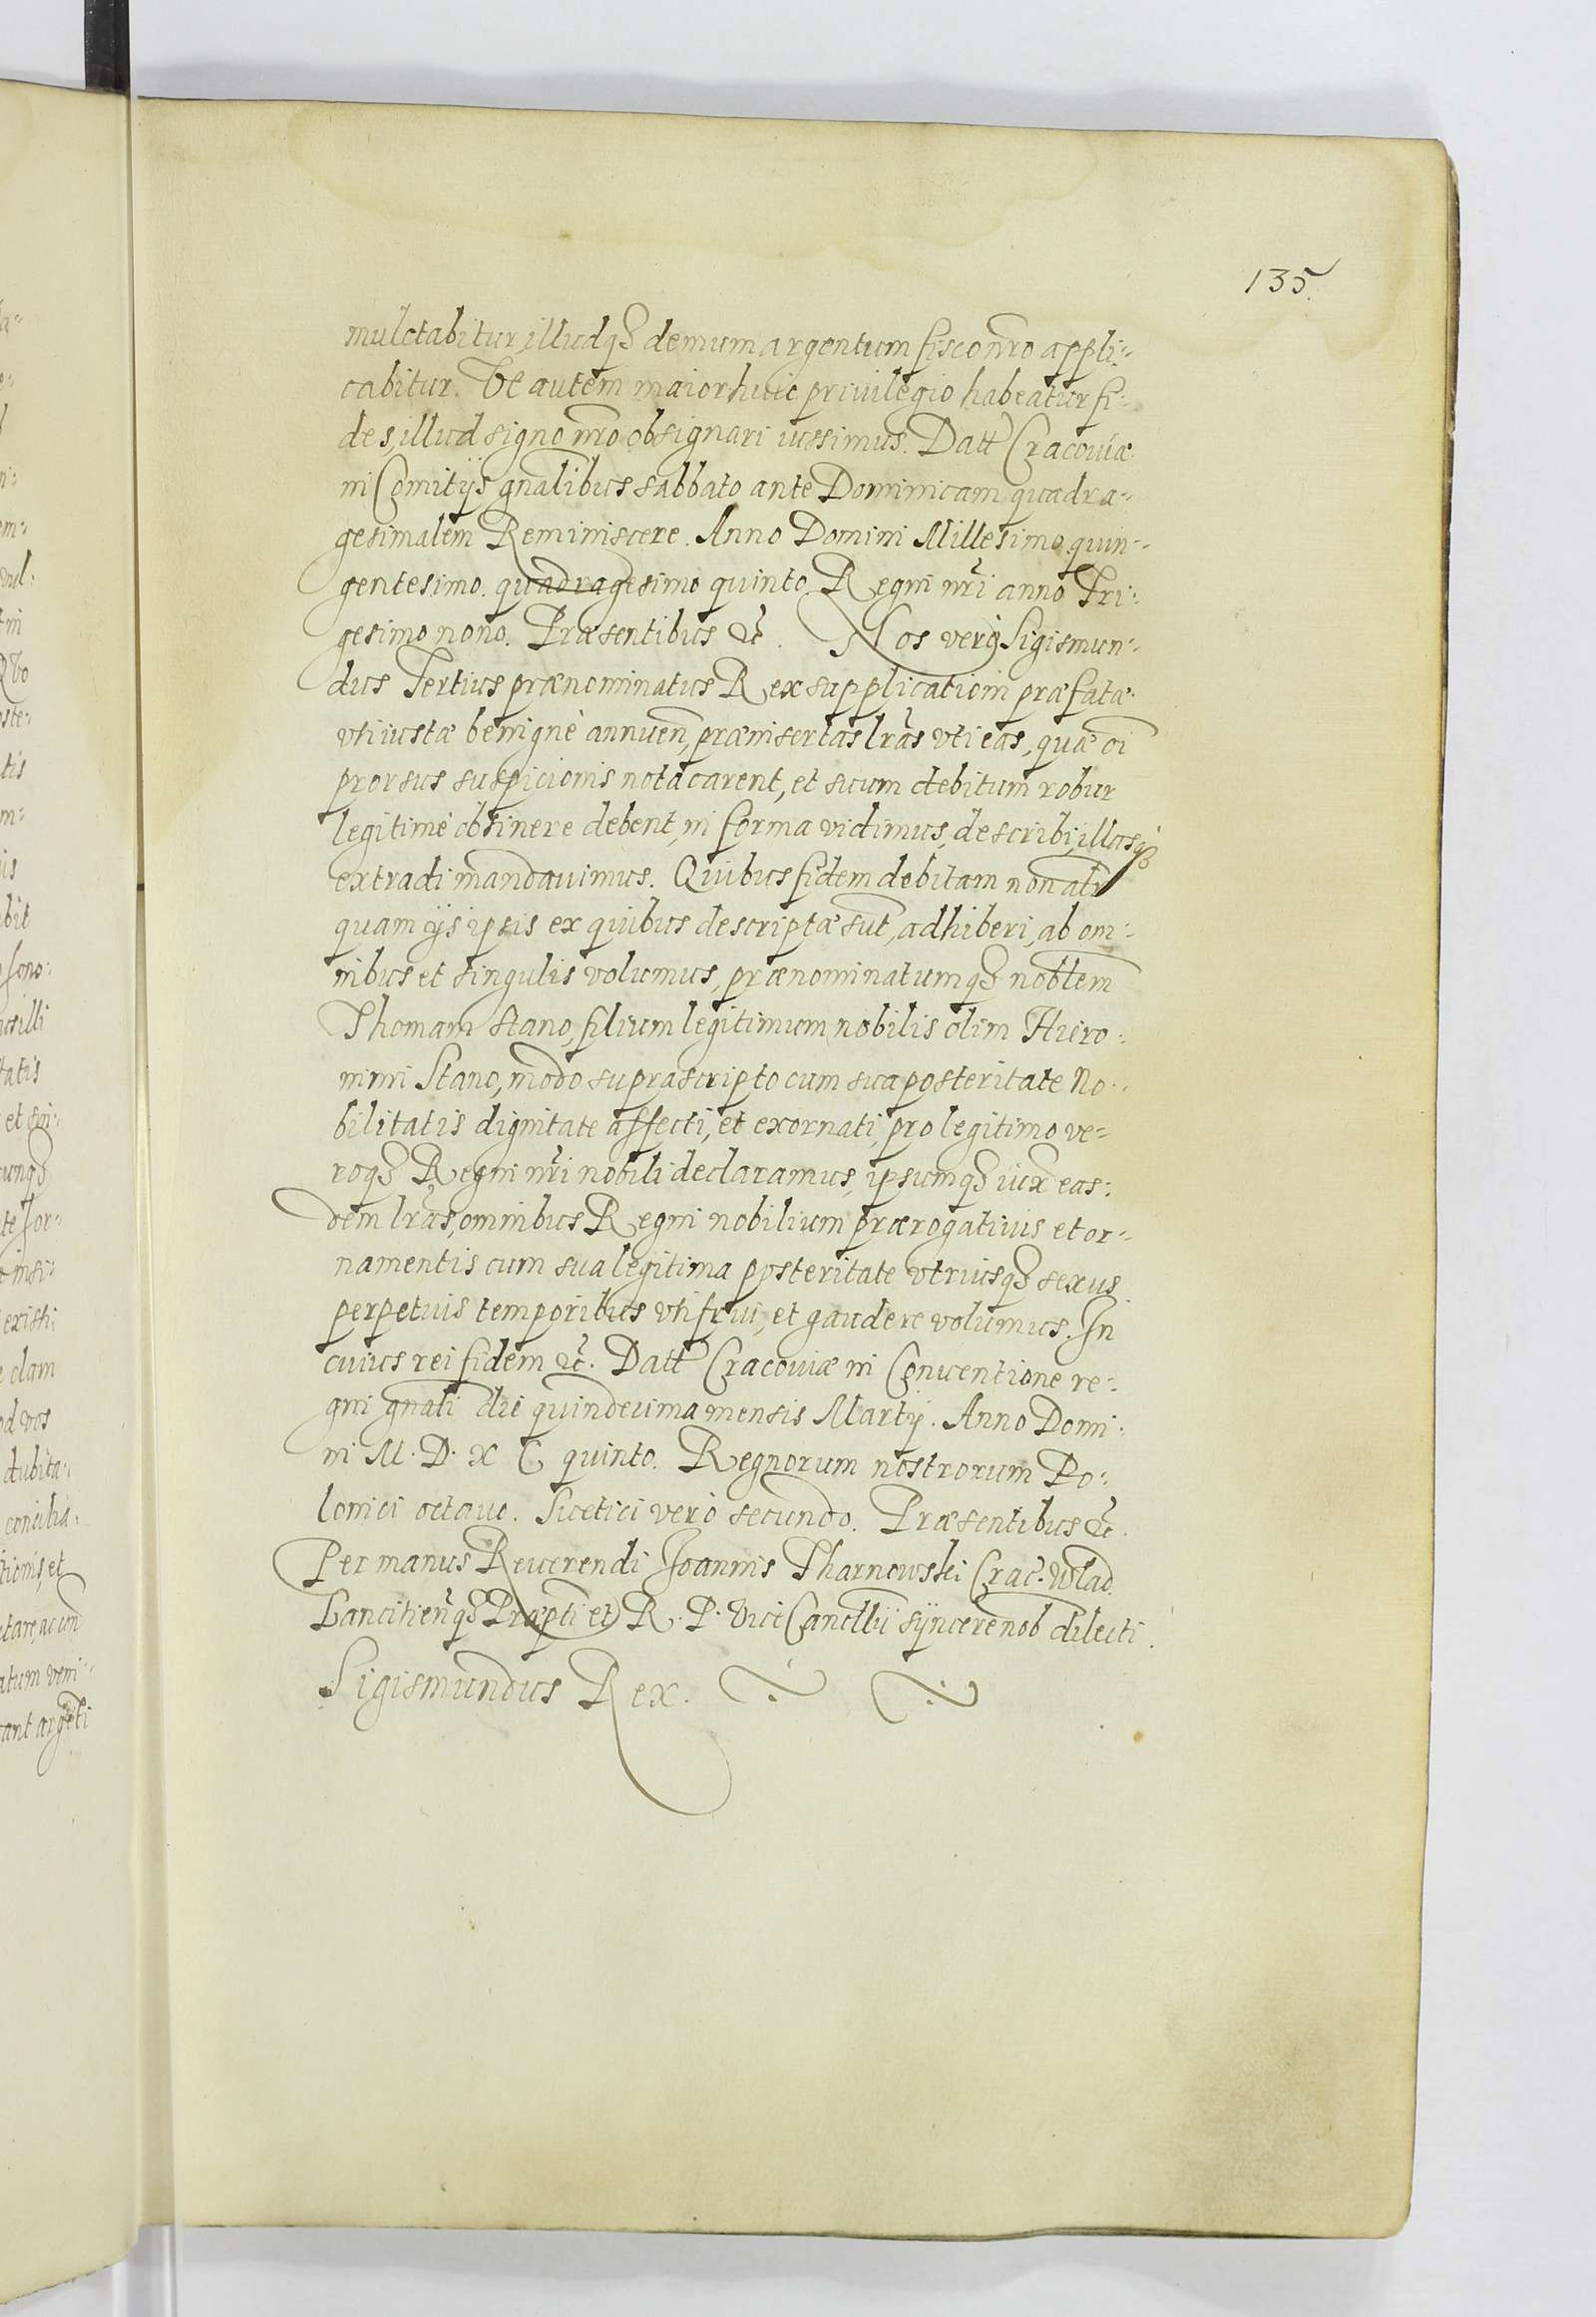 135.
mulctabitur, illudq3 demum argentum fisco nro appli-
cabitur. Vt autem maior huic privilegio habeatur fi-
des, illud signo nro obsignari iussimus. Datt Cracouiæ
in Comitijs gnalibus sabbato ante Dominicam quadra-
gesimalem Reminiscere. Anno Domini Millesimo quin-
gentesimo. quadragesimo quinto. Regni nri anno Tri-
gesimo nono. Præsentibus &c. Nos verò Sigismun-
dus Tertius prænominatus Rex supplicationi præfatæ
vti iustæ benignè annuen, præinsertas lras vti eas, quæ oi
prorsus suspicionis nota carent, et suum debitum robur
legitimè obtinere debent, in forma vidimus, describi, illasq3
extradi mandauimus. Quibus fidem debitam non alr
quam ijs ipsis ex quibus descriptæ sut, adhiberi, ab om-
nibus et singulis volumus, prænominatumq3 nobtem
Thomam Stano, filium legitimum nobilis olim Hiero-
nimi Stano, modo suprascripto cum sua posteritate No-
bilitatis dignitate affecti, et exornati, pro legitimo ve-
roq3 Regni nri nobili declaramus, ipsumq3 iux eas-
dem lras, omnibus Regni nobilium prærogatiuis et or-
namentis cum sua legitima posteritate vtriusq3 sexus
perpetuis temporibus vti frui, et gaudere volumus. In
cuius rei fidem &c. Datt Cracouiæ in Conuentione re-
gni gnali die quindecima mensis Martij. Anno Domi-
ni M. D. X C quinto. Regnorum nostrorum Po-
lonici octauo. Suetici verò secundo. Præsentibus &c.
Per manus Reuerendi Joannis Tharnowski Crac. Wlad.
Lancitienq3 Præpti et R. P. Vice Cancllij syncere nob dilecti.
Sigismundus Rex.